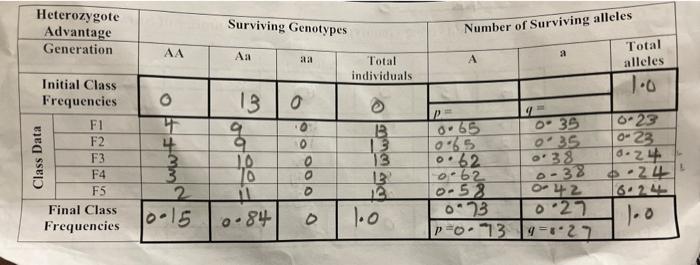 Heterozygote Advantage Surviving Genotypes Number of Surviving alleles
Generation AA Aa aa Total individuals A a Total alleles
Initial Class Frequencies 0 13 0 0 p = q = 1.0
Class Data
F1 4 9 0 13 0.65 0.35 0.23
F2 4 9 0 13 0.65 0.35 0.23
F3 3 10 0 13 0.62 0.38 0.24
F4 3 10 0 13 0.62 0.38 0.24
F5 2 11 0 13 0.58 0.42 0.24
Final Class Frequencies 0.15 0.84 0 1.0 0.73 0.27 1.0
p=0.73 q=0.27